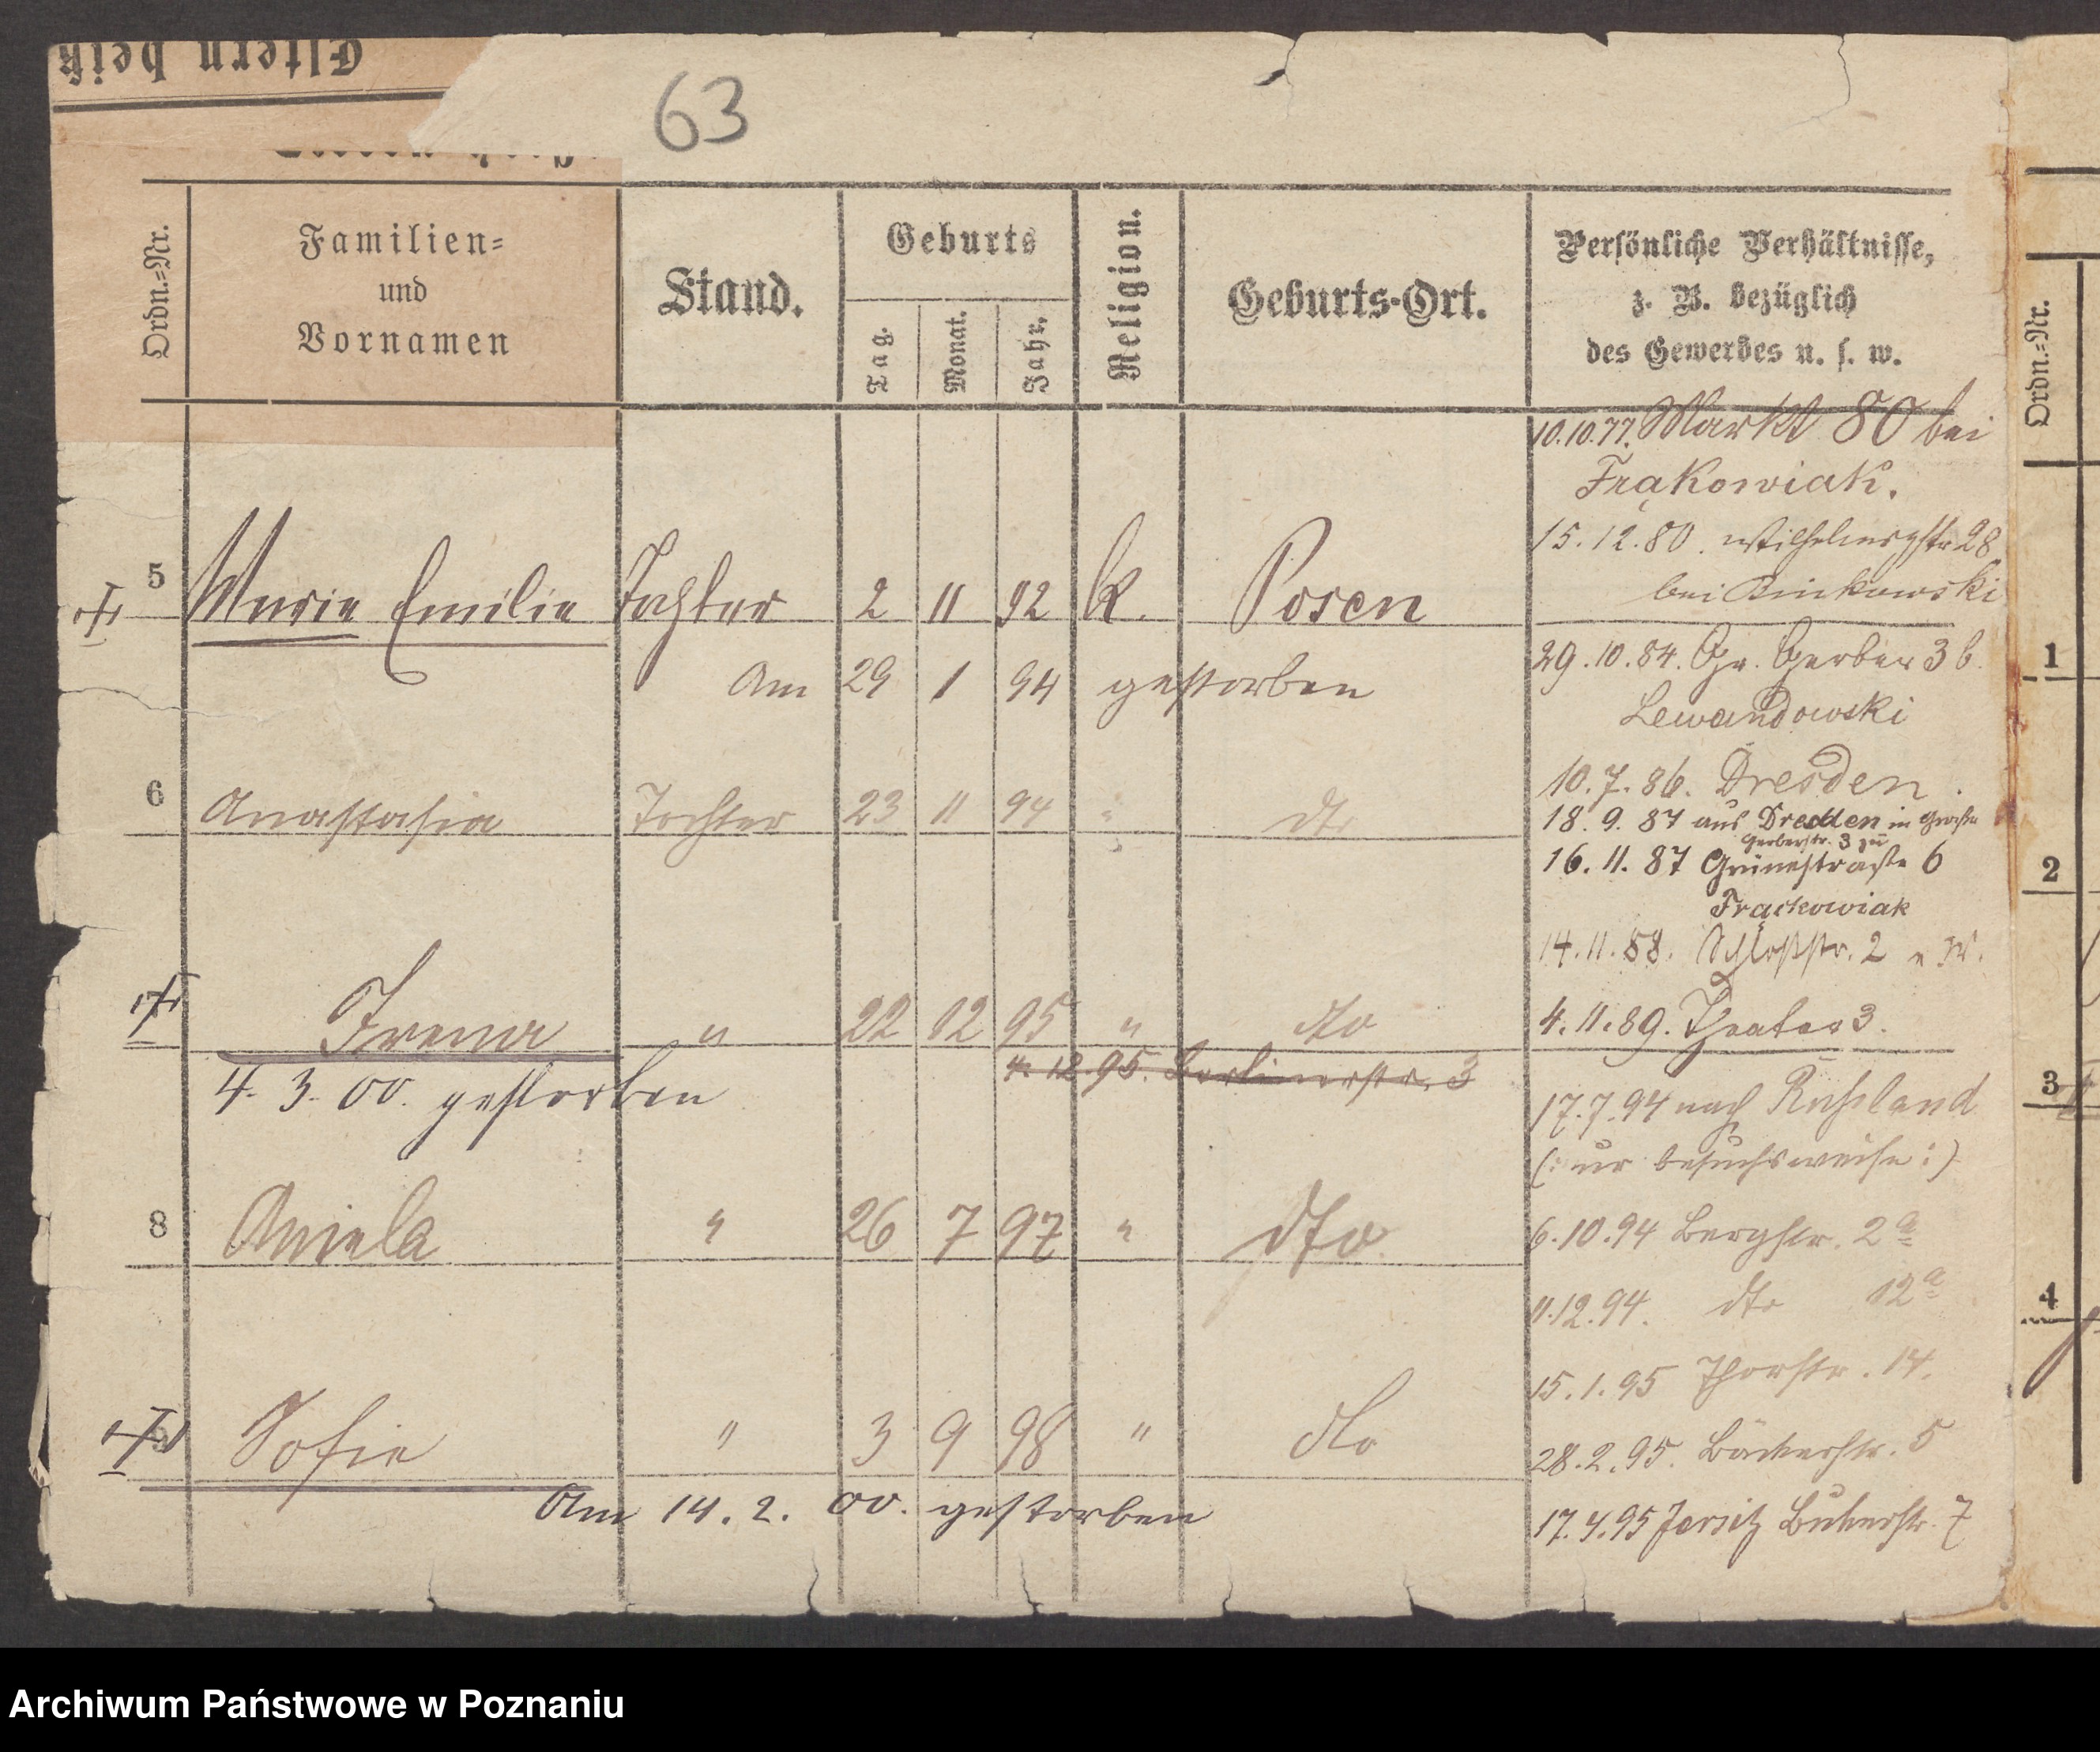 Eltern heiß
63
Ordn.=Nr.
Familien=
und
Vornamen
Stand.
Geburts
Tag.
Monat.
Jahr.
Religion.
Geburts-Ort.
Persönliche Verhältnisse,
z. B. bezüglich
des Gewerbes u. s. w.
10.10.77. Markt 80 bei
Frąkowiak.
15.12.80. Wilhelmsstr 28
bei Binkowski
5 Marie Emilie Tochter 2 11 92 k. Posen
Am 29 1 94 gestorben
29.10.84. Gr. Gerber 3 b.
Lewandowski
10.7.86. Dresden.
6 Anastasia Tochter 23 11 94 " dto
18.9.87 aus Dresden in Große
Gerberstr. 3 zu
16.11.87 Grünestraße 6
Frąckowiak
14.11.88. Schloßstr. 2 n W.
Irena " 22 12 95 " dto
4.11.89. Theater 3.
4. 3. 00. gestorben
4. 12. 95. Berlinerstr. 3
17.7.94 nach Rußland
(: nur besuchsweise :)
8 Aniela " 26 7 97 " dto
6.10.94 Bergstr. 2a
11.12.94. dto 12a
15.1.95 Thorstr. 14.
9 Sofie " 3 9 98 " dto
28.2.95. Bäckerstr. 5
Am 14. 2. 00. gestorben
17.4.95 Jersitz Bukerstr. 7
Ordn.=Nr.
1
2
3
4
Archiwum Państwowe w Poznaniu